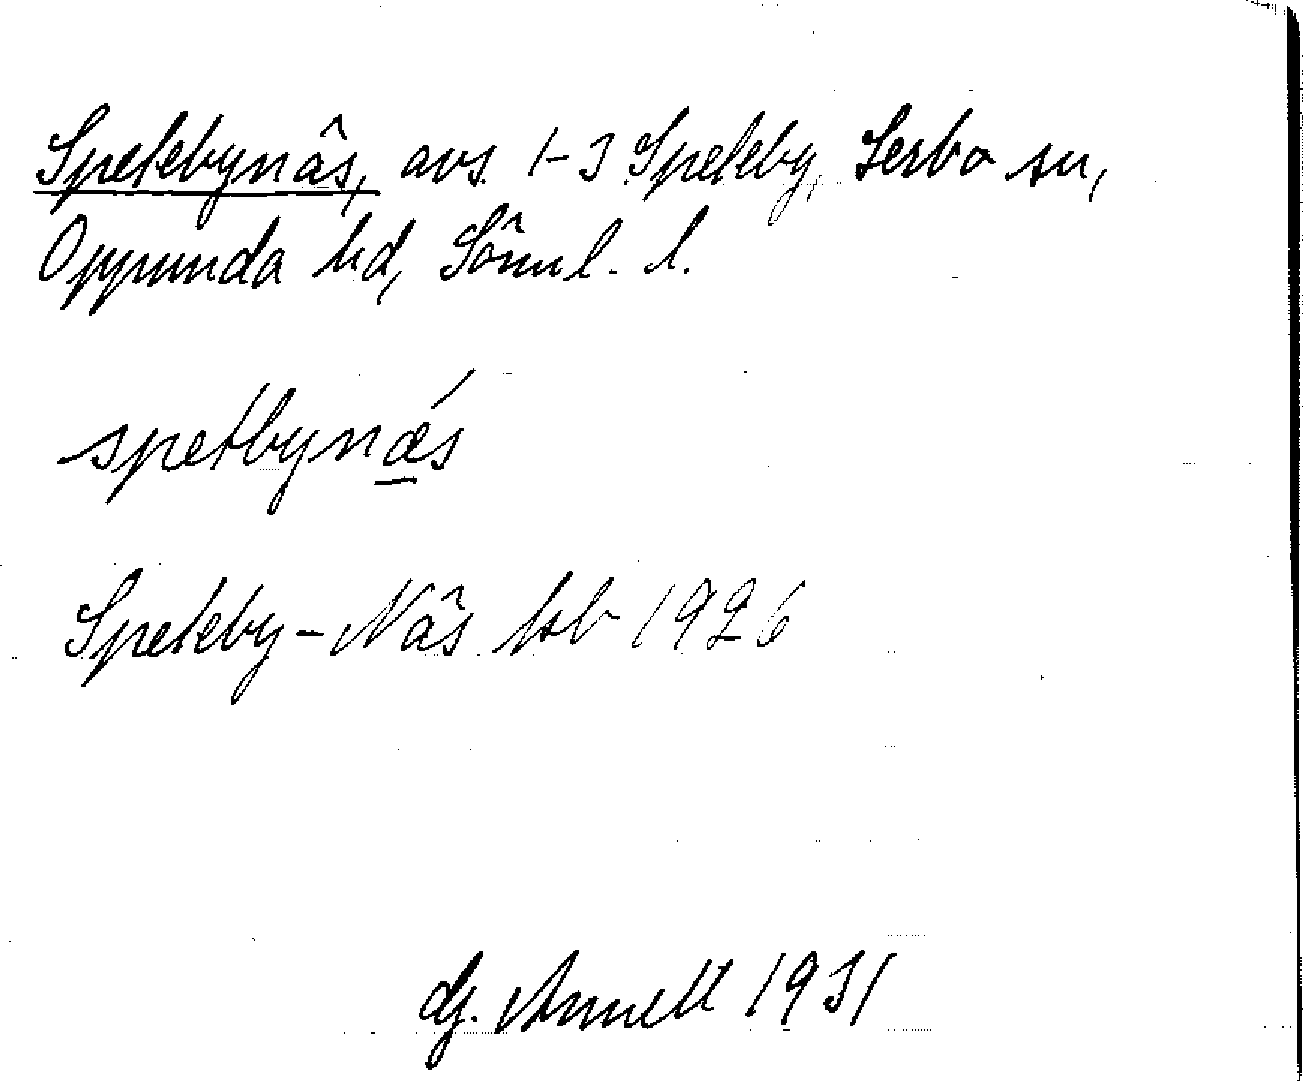 Spetebynäs, avs. 1-3 Speteby, Lerbo sn,
Oppunda hd, Söml. l.
spetbynǽs
Speteby-Näs jsb 1926
Dj. Arnell 1931